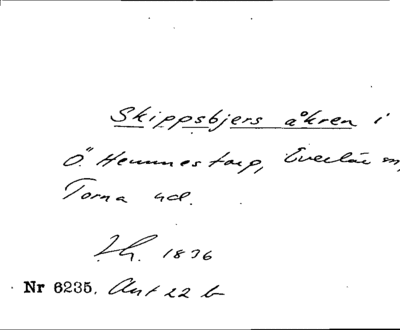 Skippsbjers åkren i
Ö. Hemmestorp, Everlöv sn,
Torna hd.
1836
Nr 6235. Akt 22 b